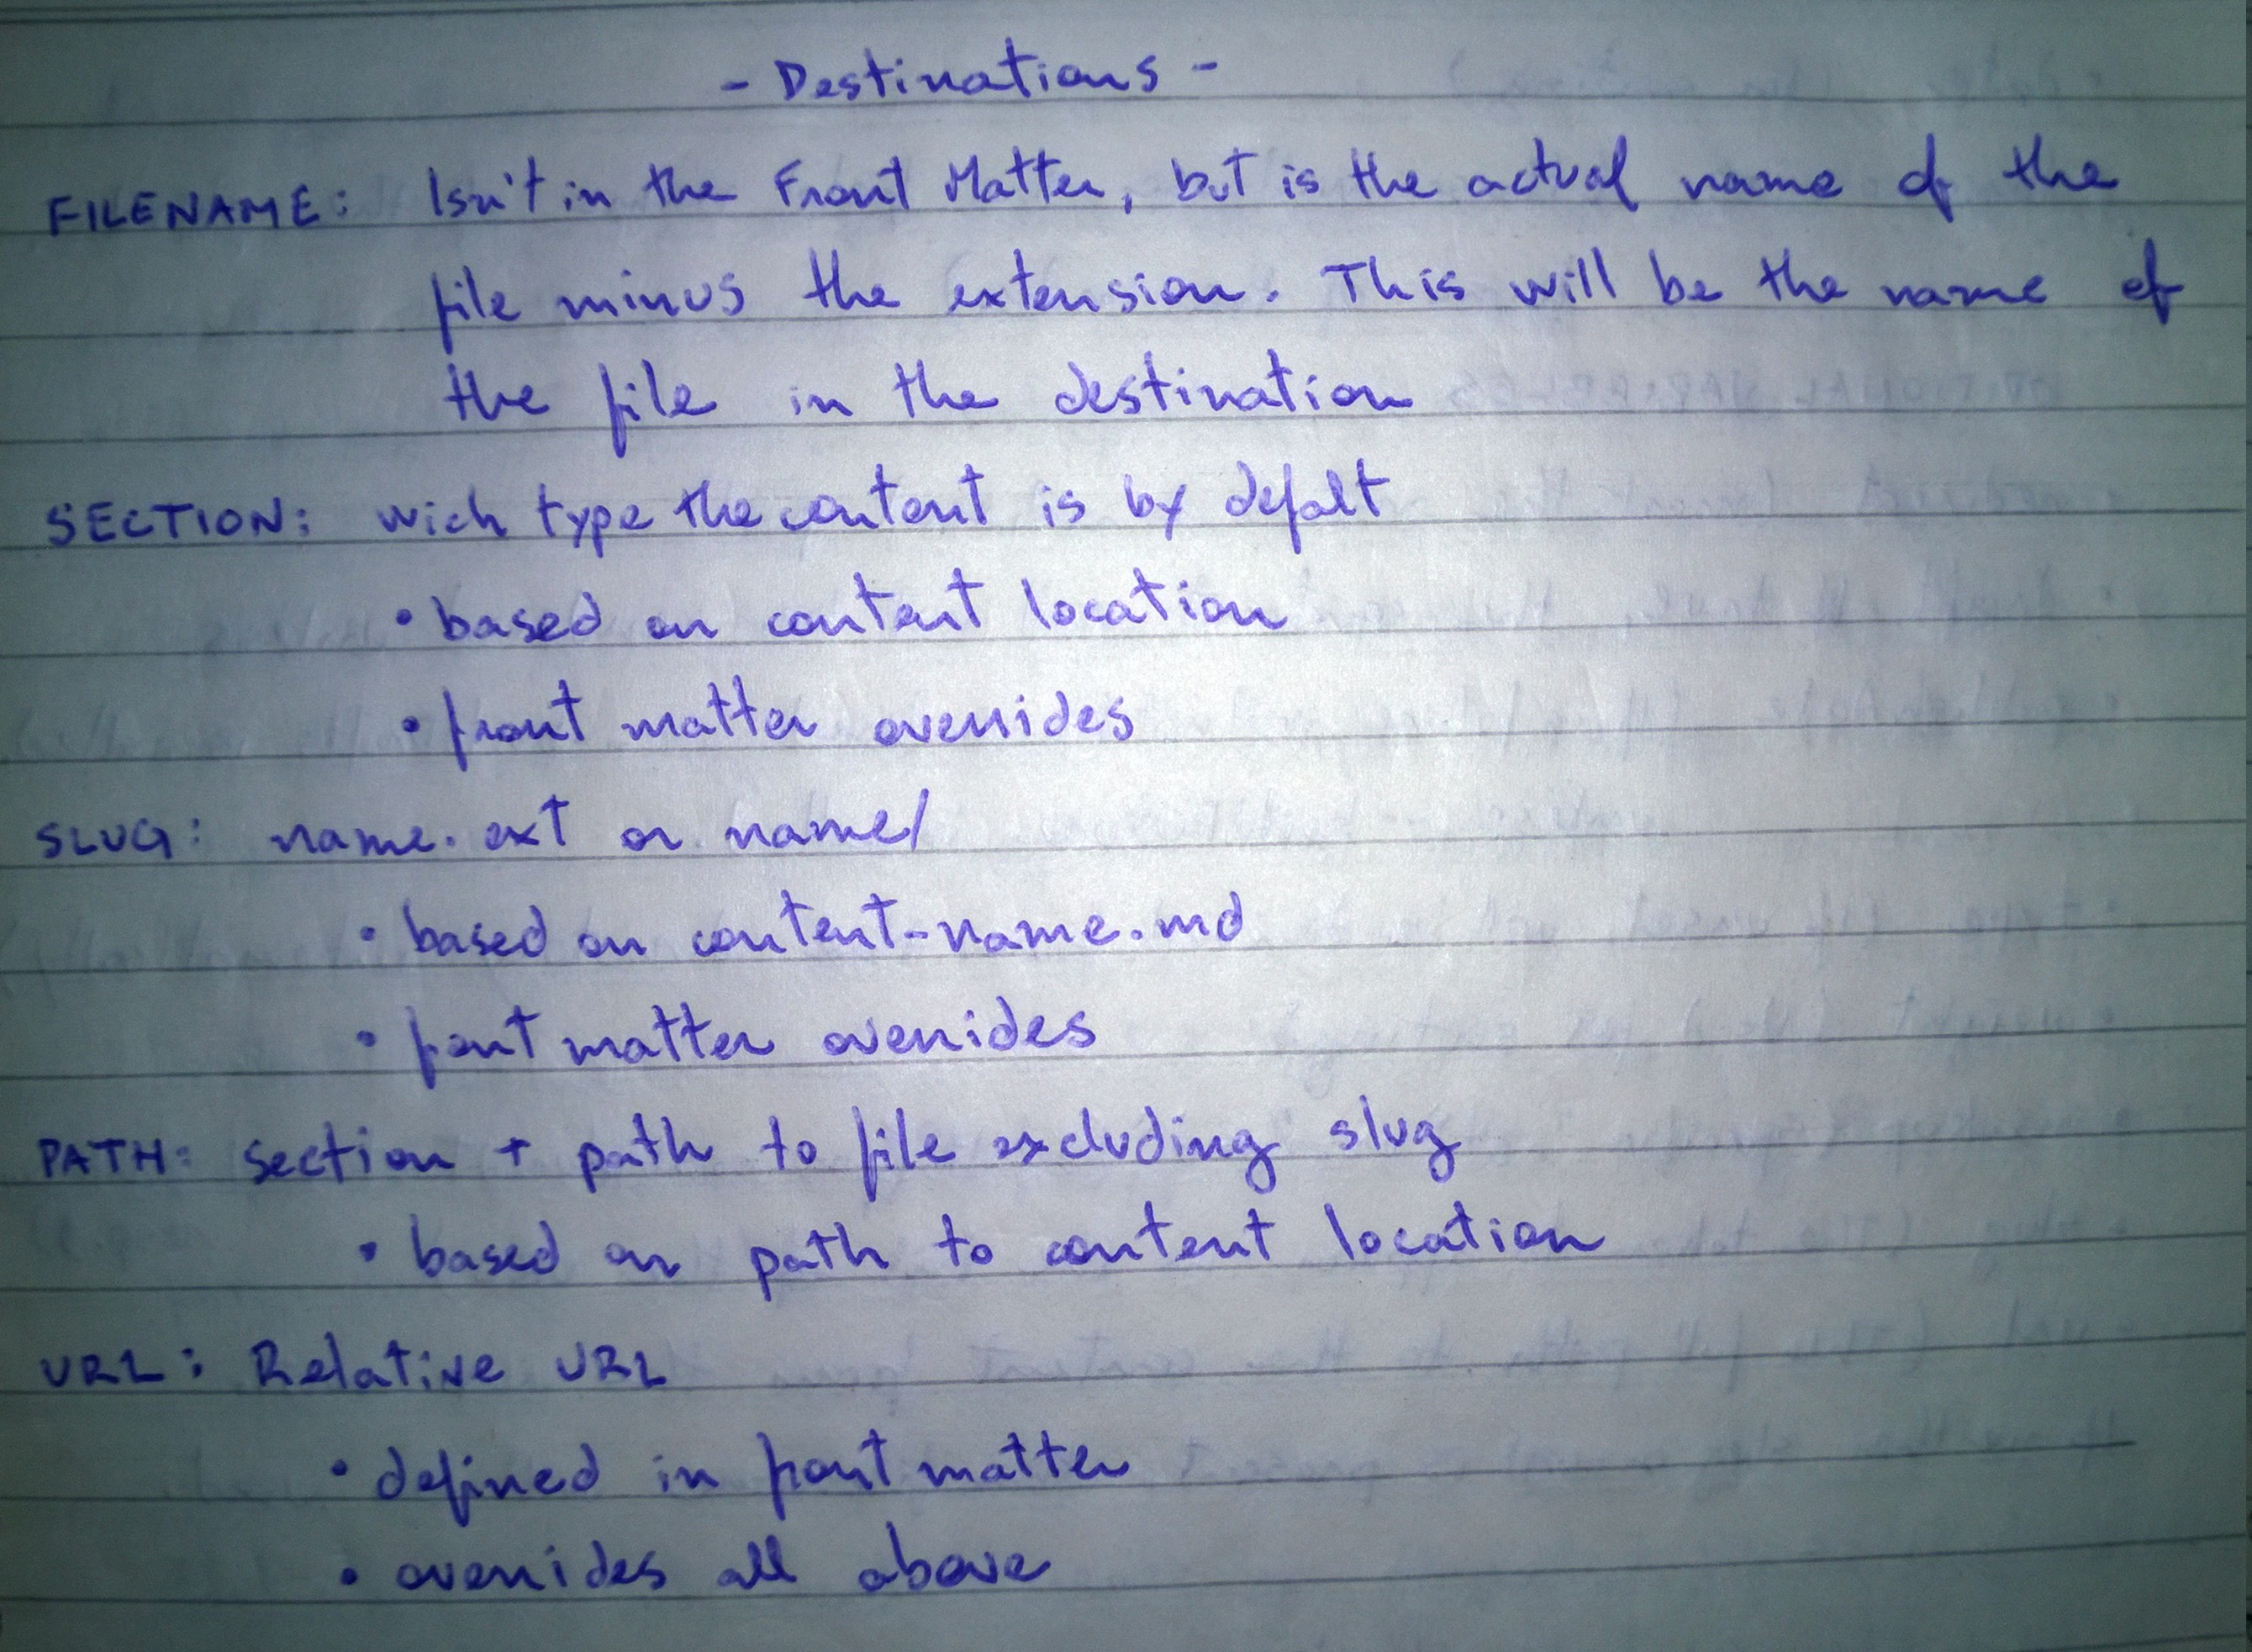 - Destinations -
FILENAME: Isn't in the Front Matter, but is the actual name of the
file minus the extension. This will be the name of
the file in the destination
SECTION: wich type the content is by defalt
• based on content location
• front matter overrides
SLUG: name.ext or name/
• based on content-name.md
• font matter overides
PATH: section + path to file excluding slug
• based on path to content location
URL: Relative URL
• defined in font matter
• overrides all above